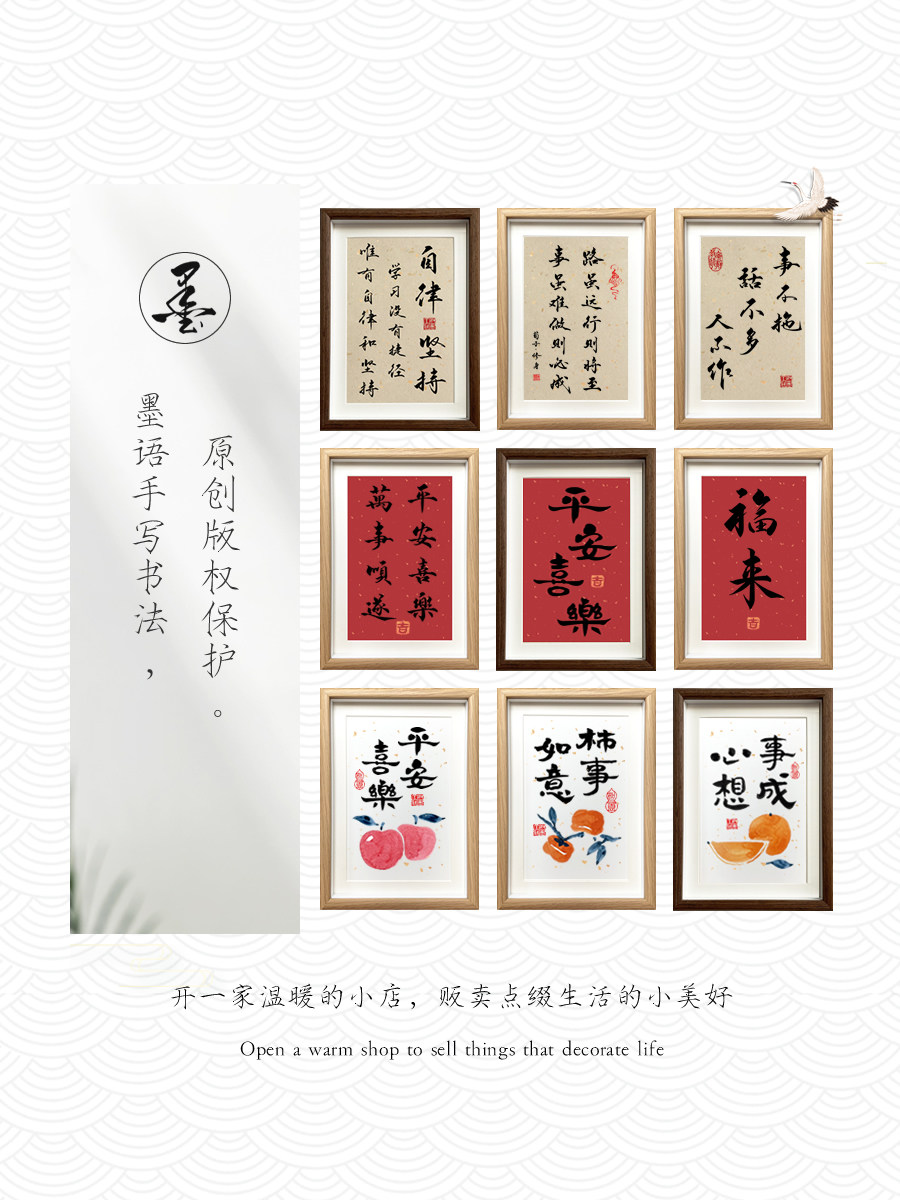 墨
墨语手写书法，
原创版权保护。
自律
坚持
学习没有捷径
唯有自律和坚持
路虽远行则将至
事虽难做则必成
荀子修身
事不拖
話不多
人不作
平安喜樂
萬事順遂
吉
平安
喜樂
吉
福来
吉
平安
喜樂
柿事
如意
事成
心想
开一家温暖的小店，贩卖点缀生活的小美好
Open a warm shop to sell things that decorate life